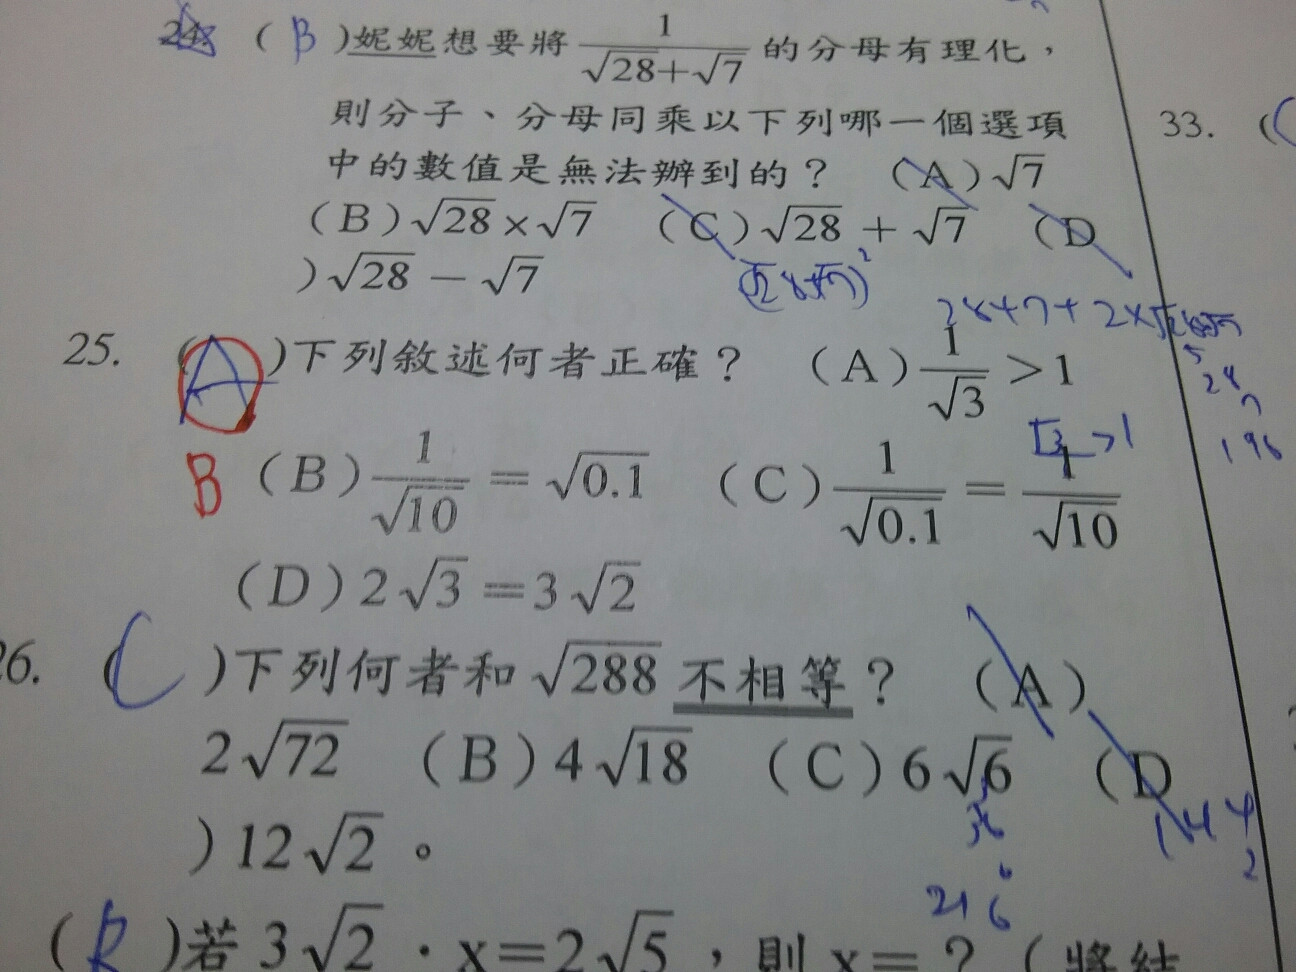 24. ( B )妮妮想要將 1/(√28+√7) 的分母有理化，
則分子、分母同乘以下列哪一個選項
中的數值是無法辦到的？ (A)√7
(B)√28×√7 (C)√28 + √7 (D
)√28 − √7
(√28+√7)²
28+7+2×√28×√7
28
7
196
25. ( A )下列敘述何者正確？ (A) 1/√3 >1
√3 >1
B (B) 1/√10 = √0.1 (C) 1/√0.1 = 1/√10
(D)2√3=3√2
26. ( C )下列何者和√288 不相等？ (A)
2√72 (B)4√18 (C)6√6 (D
)12√2。
36
6
216
144
2
( B )若3√2·x=2√5，則x=？(將結
33. (